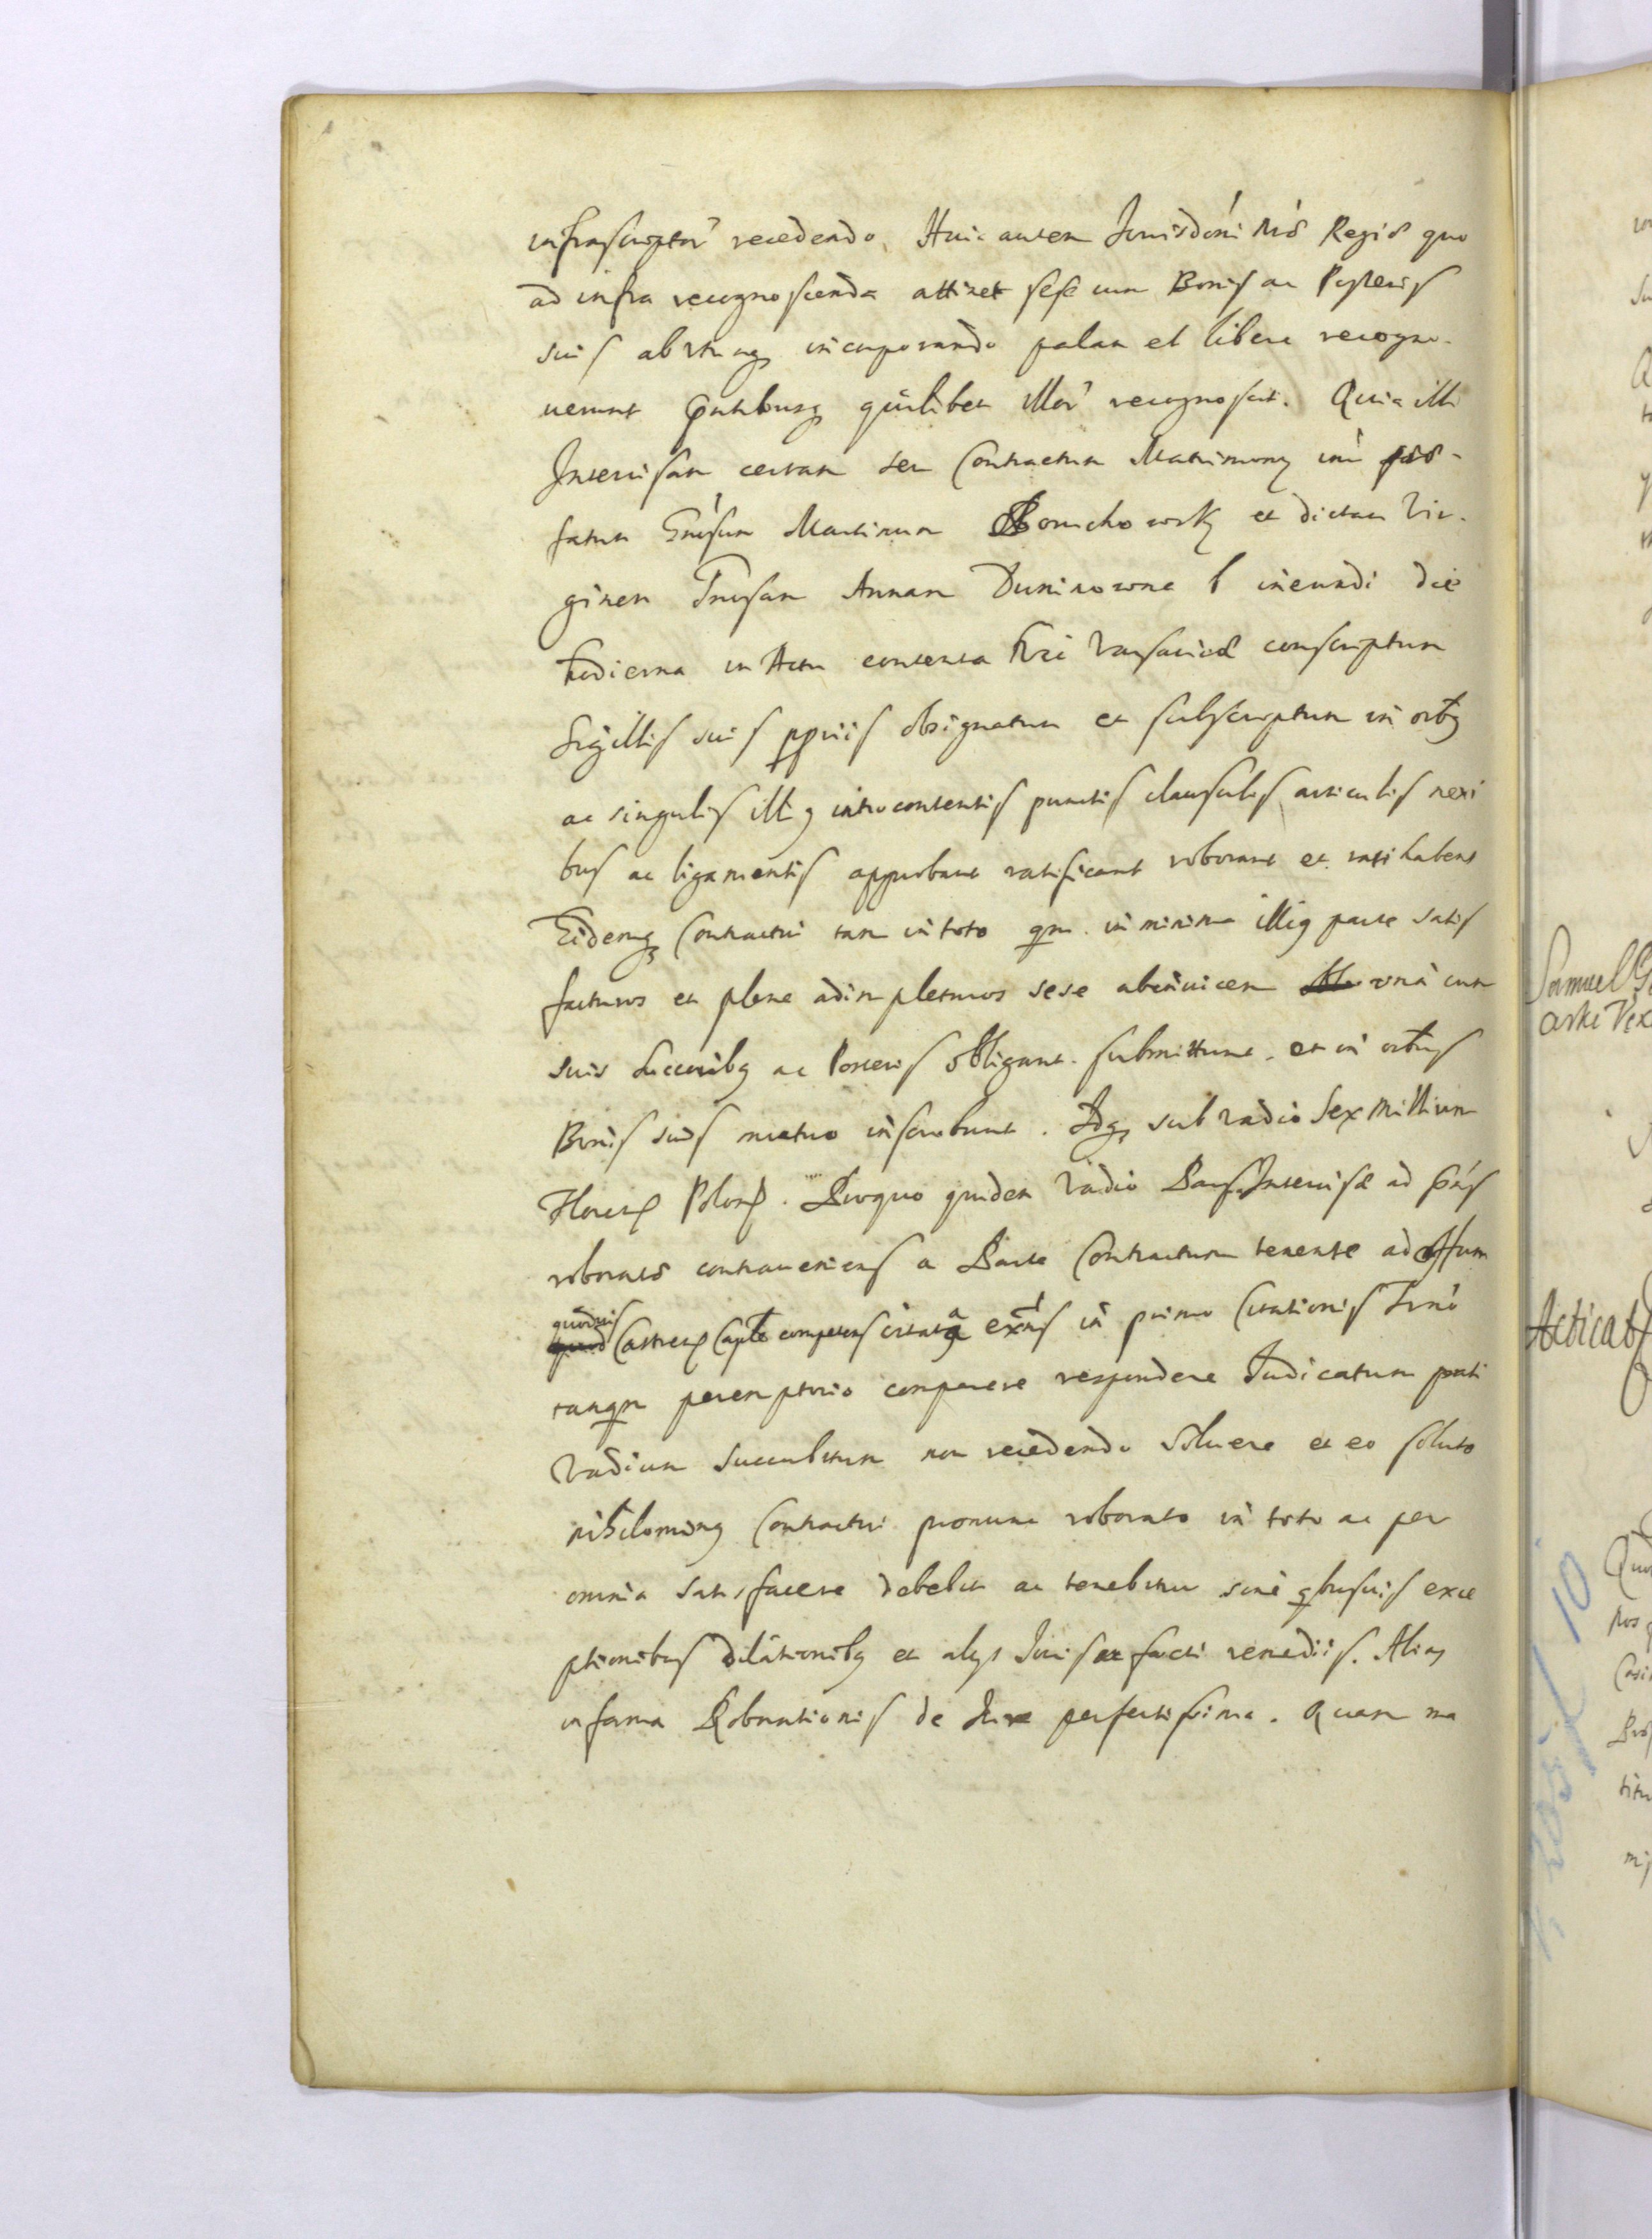 infrascriptor' recedendo. Huic autem Jurisdóni Mós Regió quo
ad infra recognoscenda attinet sese cum Bonis ac Posteris
suis ab utrinq incorporando palam et libere recogno-
uerunt Pntibusq quilibet illor' recognoscit. Quia illi
Intercisam certam seu Contractum Matrimony int' prae-
fatum Gnrsum Martinum Boruchowsky et dictam Vir-
ginem Gnrsam Annam Duninowna ineundi die
hodierna in Actu contenta Varsaviae conscriptum
Sigillis suis ppriis obsignatum et subscriptum in oibq
ac singulis illig introcontentis punctis clausulis articulis nexi
bus ac ligamentis approbant ratificant roborant et ratihabent
Eidemq Contractui tam in toto qm in minima illig parte satis
facturos et plene adimpleturos sese abinuicem una cum
suis Succrribq ac Posteris obligant. submittunt. et in oibus
Bonis suis mutuo inscribunt. Idq sub vadio Sex Millium
Floren Polon. Proquo quidem Vadio Pars Intercisae ad Pns
roboratae contraueniens a Parte Contractum tenente ad Offum
quoduis Castren Capte competens citata exns in primo Citationis Trno
tanqm peremptorio comparere respondere Iudicatum pati
Vadium succubitum non recedendo soluere et eo soluto
nihilominq Contractui pronunc roborato in toto ac per
omnia satisfacere debebit ac tenebitur sine qbusuis exce
ptionibus dilationibq et alys Juris ac facti remediis. Alias
in forma Roborationis de Jure perfectissima. Quam ma
Samuel
Acticat
10